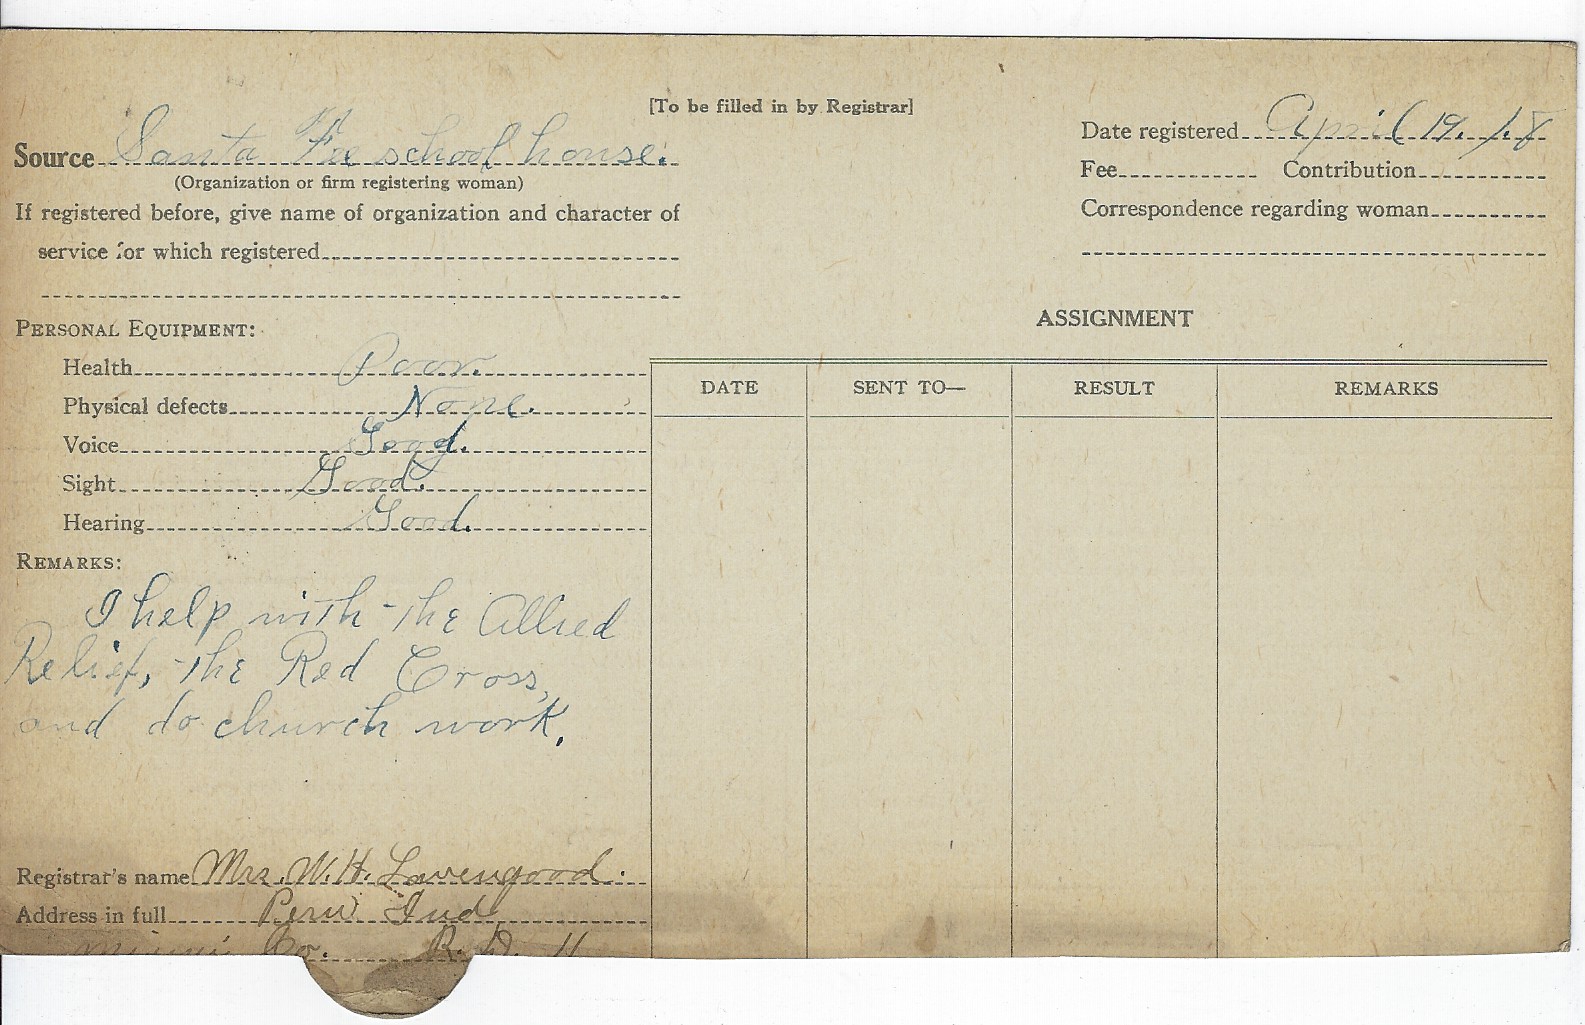 [To be filled in by Registrar]
Source Santa Fee school house.
(Organization or firm registering woman)
If registered before, give name of organization and character of
service for which registered
Date registered April 19. 18
Fee Contribution
Correspondence regarding woman
PERSONAL EQUIPMENT:
Health Poor.
Physical defects None.
Voice Good.
Sight Good.
Hearing Good.
REMARKS:
I help with the Allied
Relief, the Red Cross,
and do church work.
Registrar's name Mrs. W. H. Lavengood.
Address in full Peru Ind
Miami Co. R. D. 11
ASSIGNMENT
DATE SENT TO— RESULT REMARKS